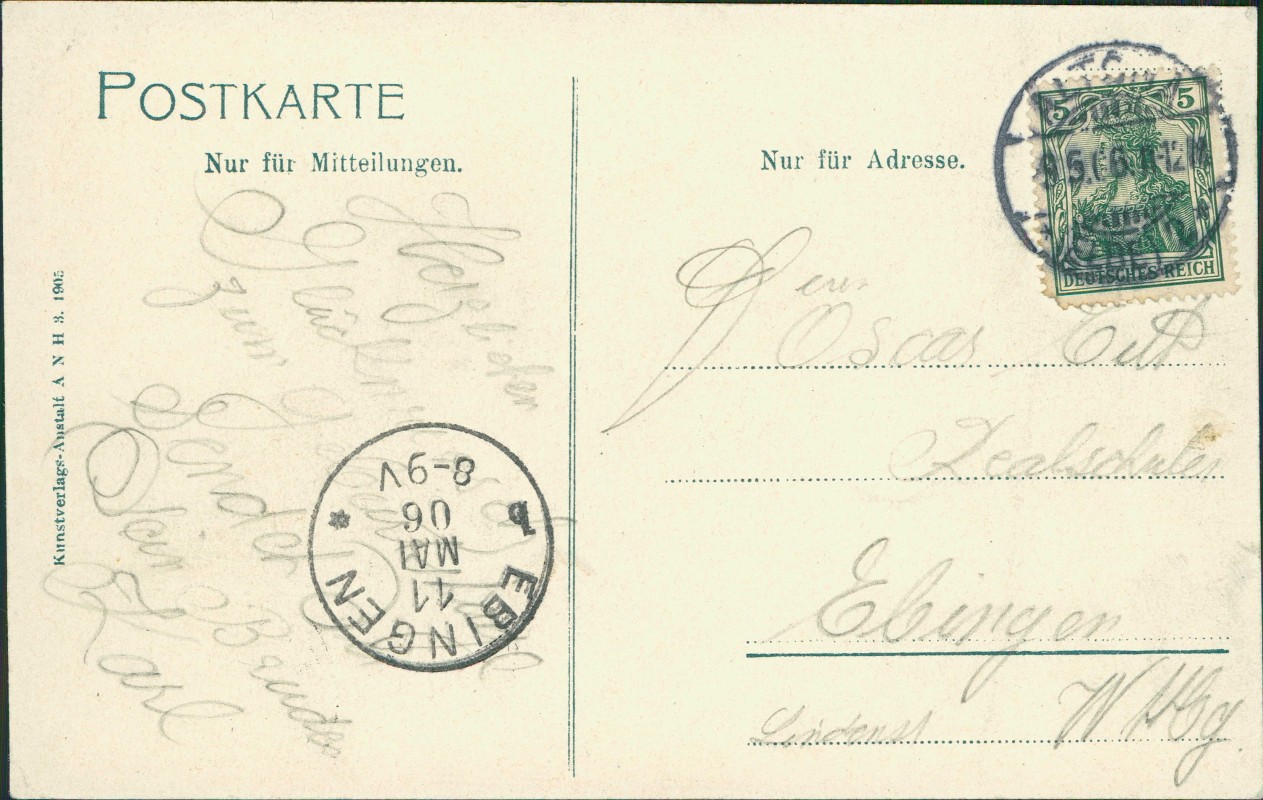 POSTKARTE
Nur für Mitteilungen.
Herzlichen
Glückwunsch
zum Geburtstag
Sendet Dir
Dein Bruder
Karl
Kunstverlags-Anstalt A N H 3. 1905
EBINGEN
11
MAI
06
8-9V
Nur für Adresse.
5 5
DEUTSCHES REICH
Herrn
Oscar
Realschüler
Ebingen
Lindenst